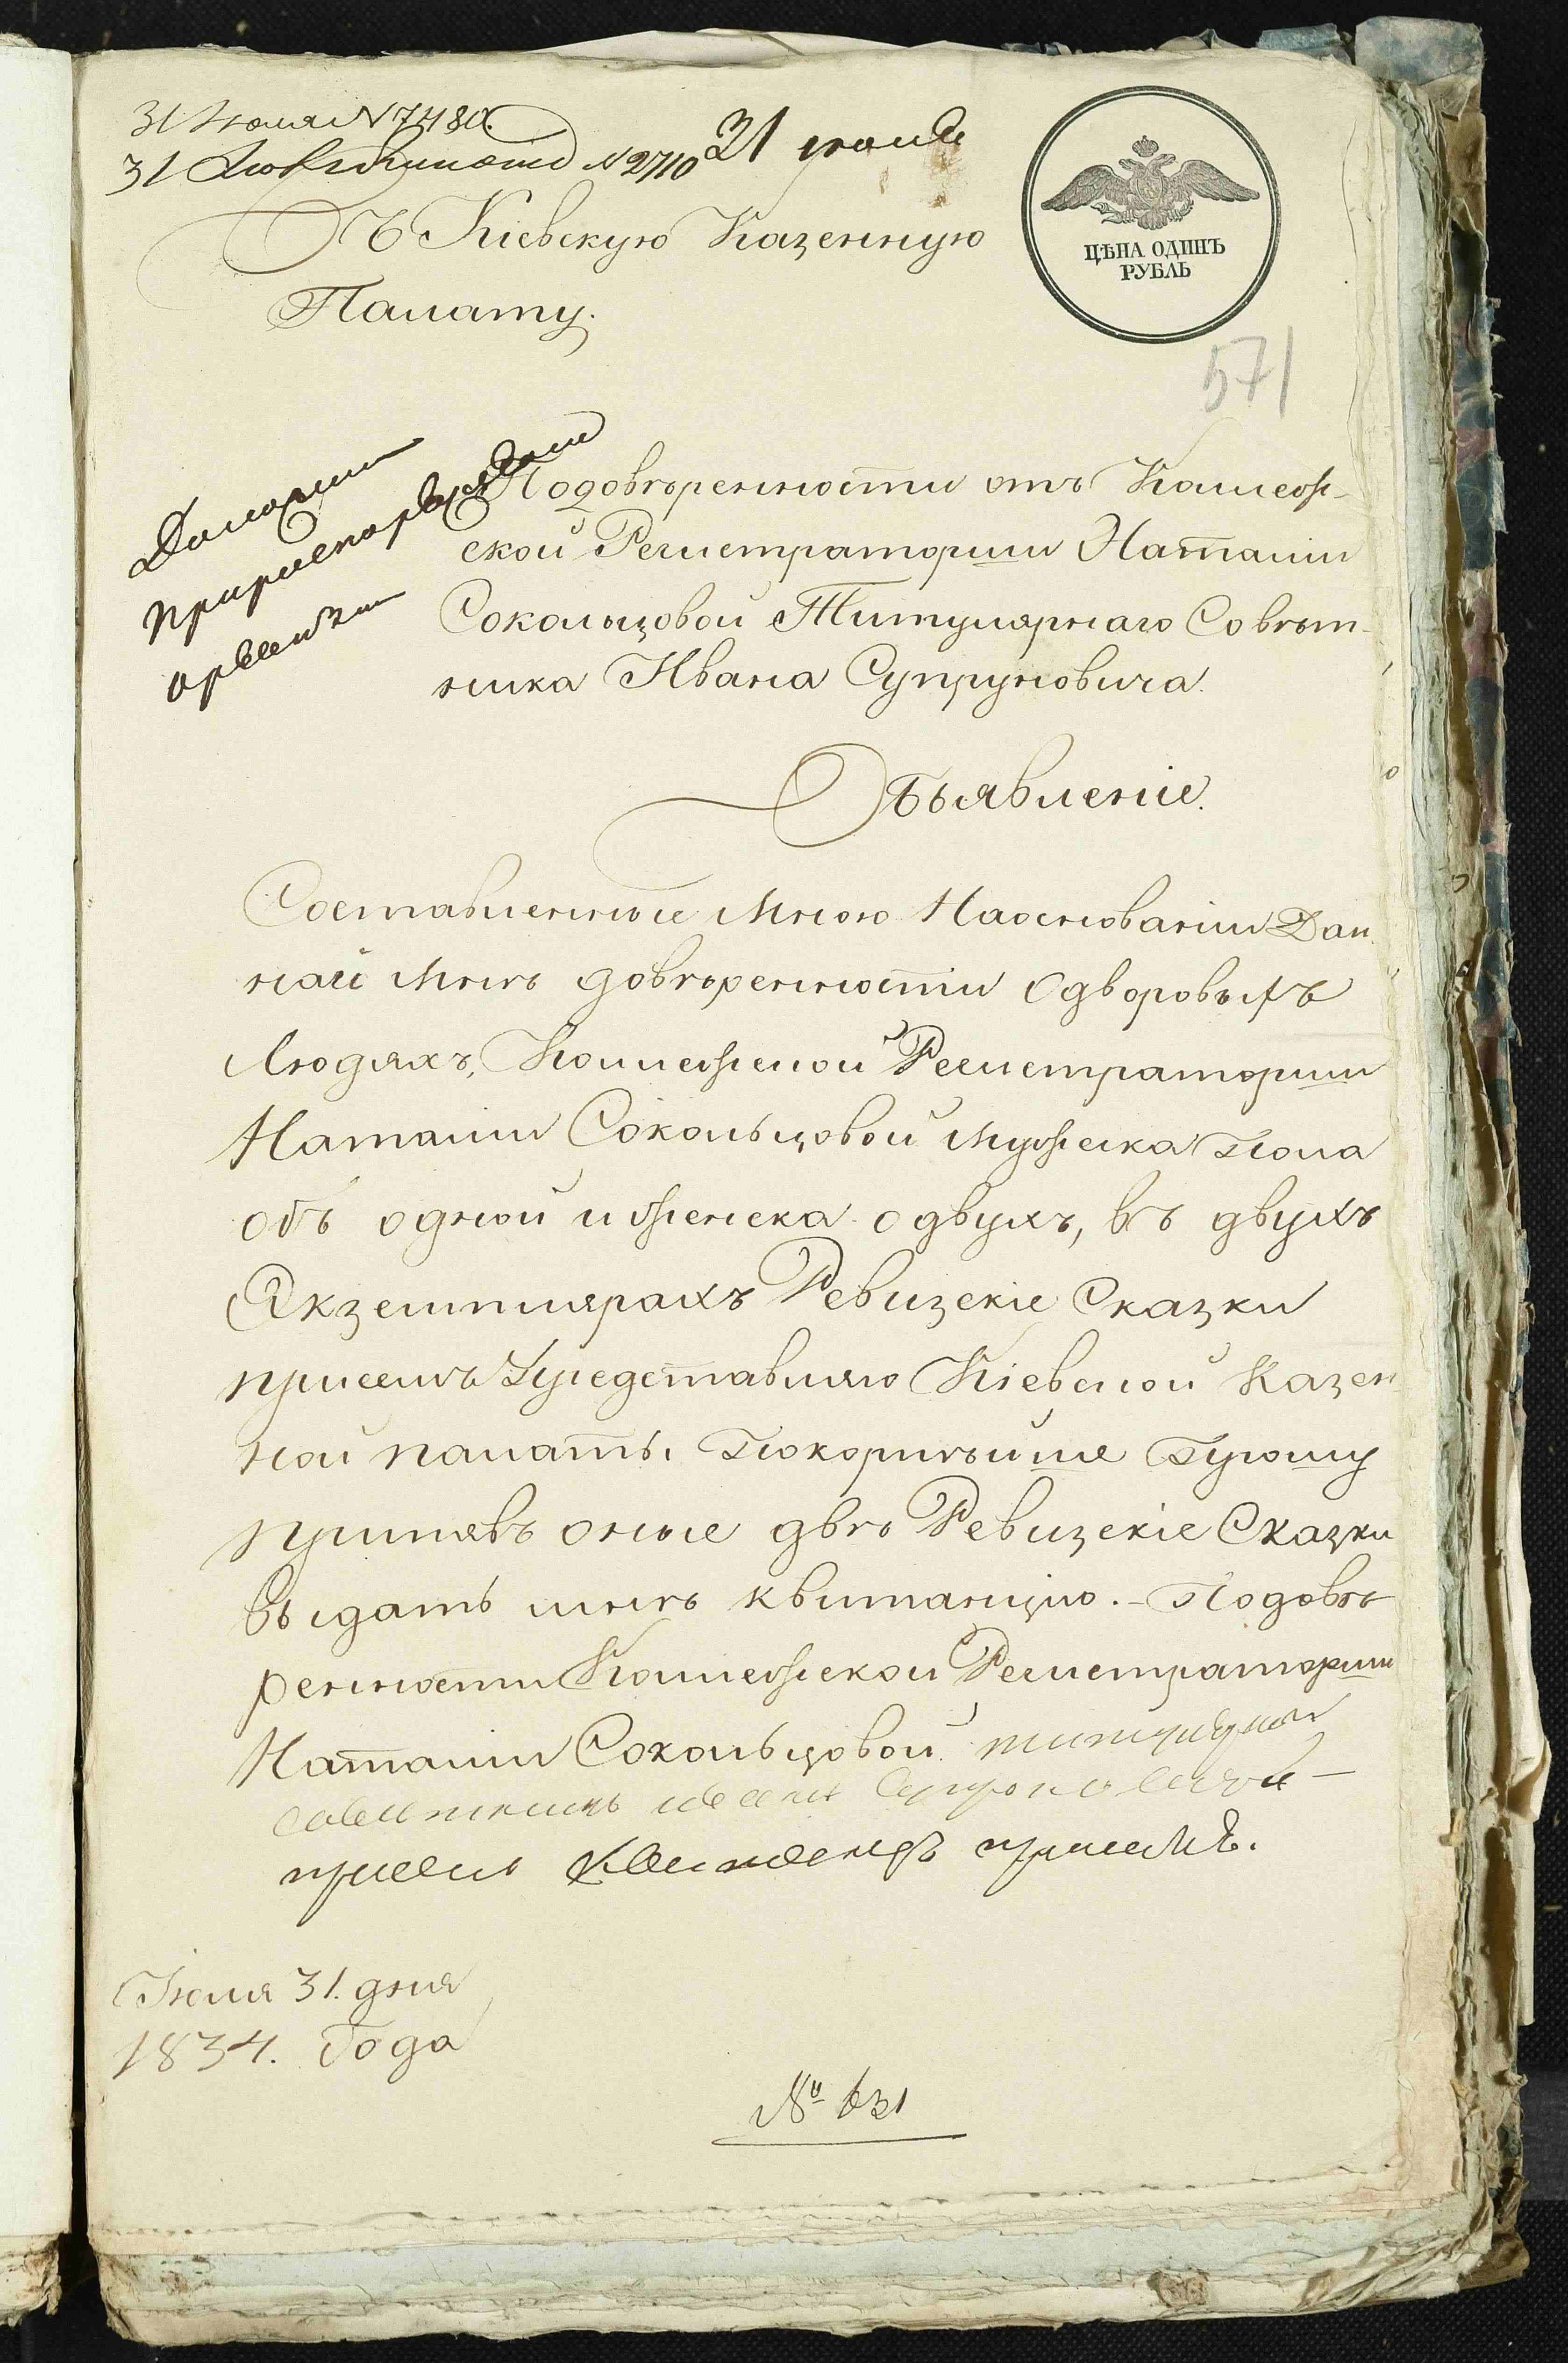 31 Июля N 7480.
31 N 2710 31 июля
Въ Кіевскую Казенную
Палату.
ЦѢНА ОДИНЪ
РУБЛЬ
571
Подовѣренности отъ Колеж-
ской Регистраторши Наталіи
Сокольцовой Титулярнаго Совѣт-
ника Ивана Супруновича.
Объявленіе.
Составленные Мною Наоснованіи Дан
ной Мнѣ довѣренности Одворовыхъ
Людяхъ, Колежской Регистраторши
Наталіи Сокольцовой Мужеска пола
объ одной и женска о двухъ, въ двухъ
Экземплярахъ Ревизскіе Сказки
присемъ представляю Кіевской Казен
ной палаты. Покорнѣйше Прошу
принявъ оные двѣ Ревизскіе Сказки
выдать мнѣ квитанцію. - Подовѣ
ренности Колежской Регистраторши
Наталіи Сокольцовой титулярный
советникъ иванъ Супруновичъ -
Іюля 31. дня
1834. Года
№ 631